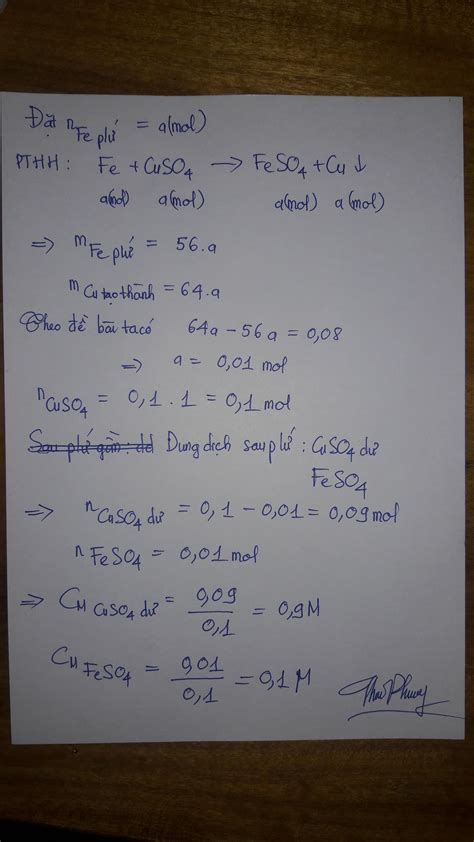 Đặt nFe pứ = a(mol)
PTHH : Fe + CuSO4 → FeSO4 + Cu ↓
a(mol) a(mol) a(mol) a(mol)
⇒ mFe pứ = 56.a
mCu tạo thành = 64.a
Theo đề bài ta có 64a - 56a = 0,08
⇒ a = 0,01 mol
nCuSO4 = 0,1 . 1 = 0,1 mol
Sau phứ gồm : dd Dung dịch sau pứ : CuSO4 dư
FeSO4
⇒ nCuSO4 dư = 0,1 - 0,01 = 0,09 mol
nFeSO4 = 0,01 mol
⇒ CM CuSO4 dư = 0,09 / 0,1 = 0,9M
CM FeSO4 = 0,01 / 0,1 = 0,1 M